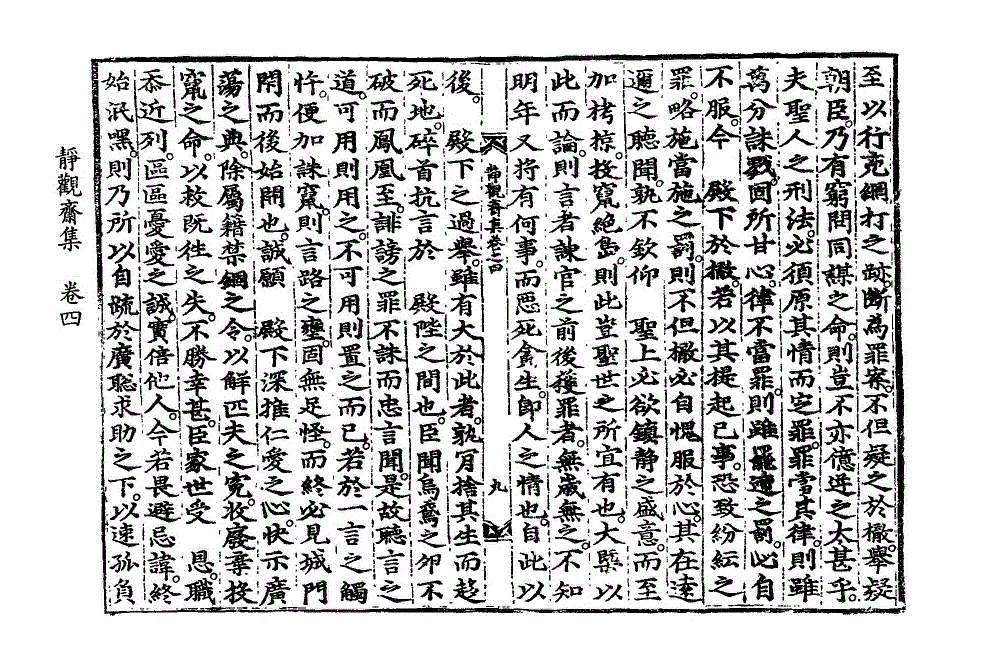 至以行兇網打之跡。斷爲罪案。不但疑之於撤。舉疑
朝臣。乃有窮問同謀之命。則豈不亦億逆之太甚乎。
夫聖人之刑法。必須原其情而定罪。罪當其律。則雖
萬分誅戮。固所甘心。律不當罪。則雖罷遣之罰。必自
不服。今　殿下於撤。若以其提起已事。恐致紛紜之
罪。略施當施之罰。則不但撤必自愧服於心。其在遠
邇之聽聞。孰不欽仰　聖上必欲鎭靜之盛意。而至
加栲掠。投竄絶島。則此豈聖世之所宜有也。大槩以
此而論。則言者諫官之前後獲罪者。無歲無之。不知
明年又將有何事。而惡死貪生。卽人之情也。自此以
靜觀齋集卷之四　九
後。　殿下之過擧。雖有大於此者。孰肯捨其生而趍
死地。碎首抗言於　殿陛之間也。臣聞烏鳶之卵不
破而鳳凰至。誹謗之罪不誅而忠言聞。是故聽言之
道。可用則用之。不可用則置之而已。若於一言之觸
忤。便加誅竄。則言路之壅。固無足怪。而終必見城門
閉而後始開也。誠願　殿下深推仁愛之心。快示廣
蕩之典。除屬籍禁錮之令。以解匹夫之寃。收廢棄投
竄之命。以救旣徃之失。不勝幸甚。臣家世受　恩。職
忝近列。區區憂愛之誠。實倍他人。今若畏避忌諱。終
始泯默。則乃所以自疏於廣聽求助之下。以速孤負
靜觀齋集　卷四